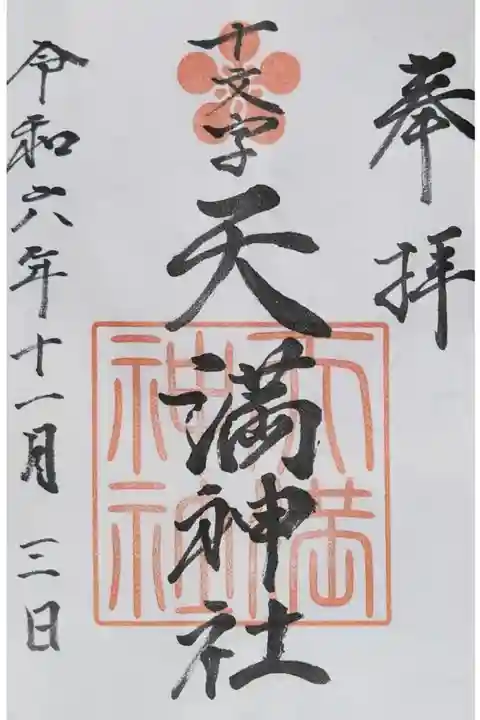 奉拝
十文字
天満神社
天満神社
令和六年十一月三日